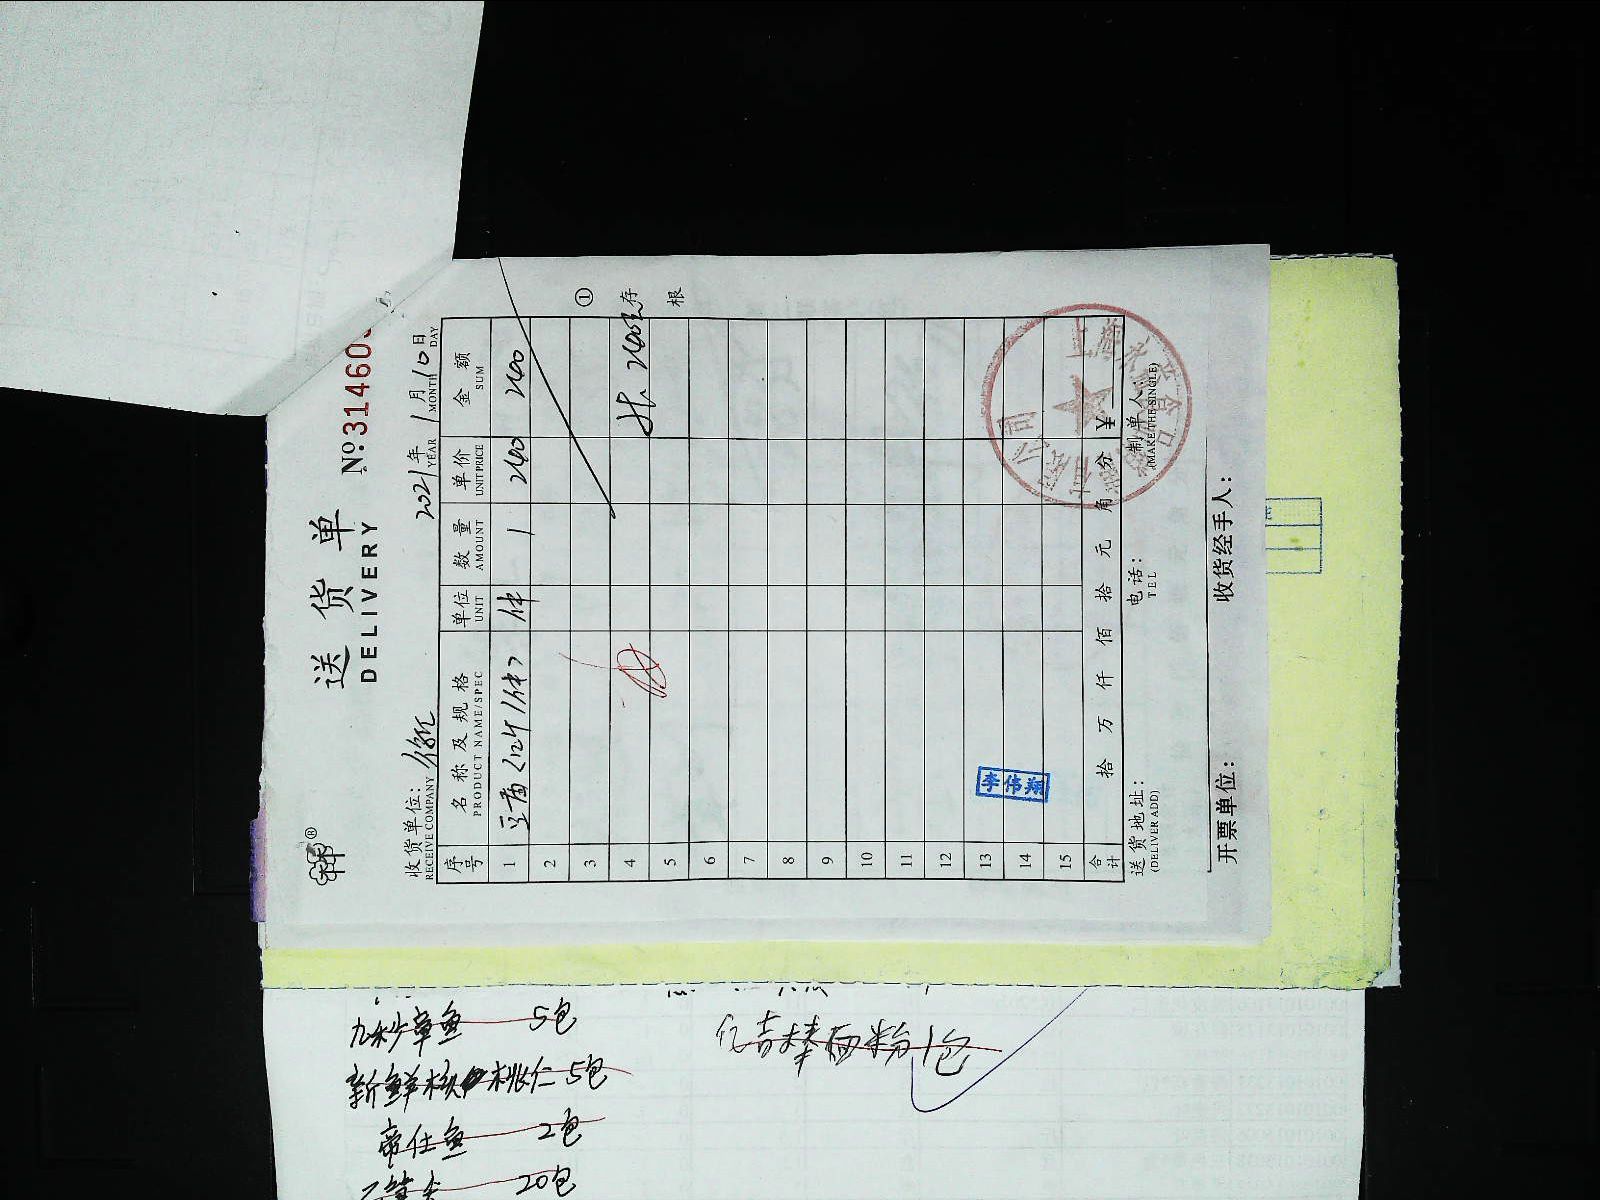 送货单
DELIVERY
№314603
收货单位：
RECEIVE COMPANY
2021年1月10日
YEAR MONTH DAY
序号 名称及规格 单位 数量 单价 金额
PRODUCT NAME/SPEC UNIT AMOUNT UNIT PRICE SUM
1 件 1 240 240
2
3
4
5
6
7
8
9
10
11
12
13
14
15
①存根
李伟翔
合计 拾 万 仟 佰 拾 元 角 分 ¥
送货地址： 电话： 制单人：
(DELIVER ADD) TEL (MAKE THE SINGLE)
开票单位： 收货经手人：
九秒章鱼 5包
新鲜核桃仁 5包
帝仕鱼 2包
20包
亿吉祥面粉 1包